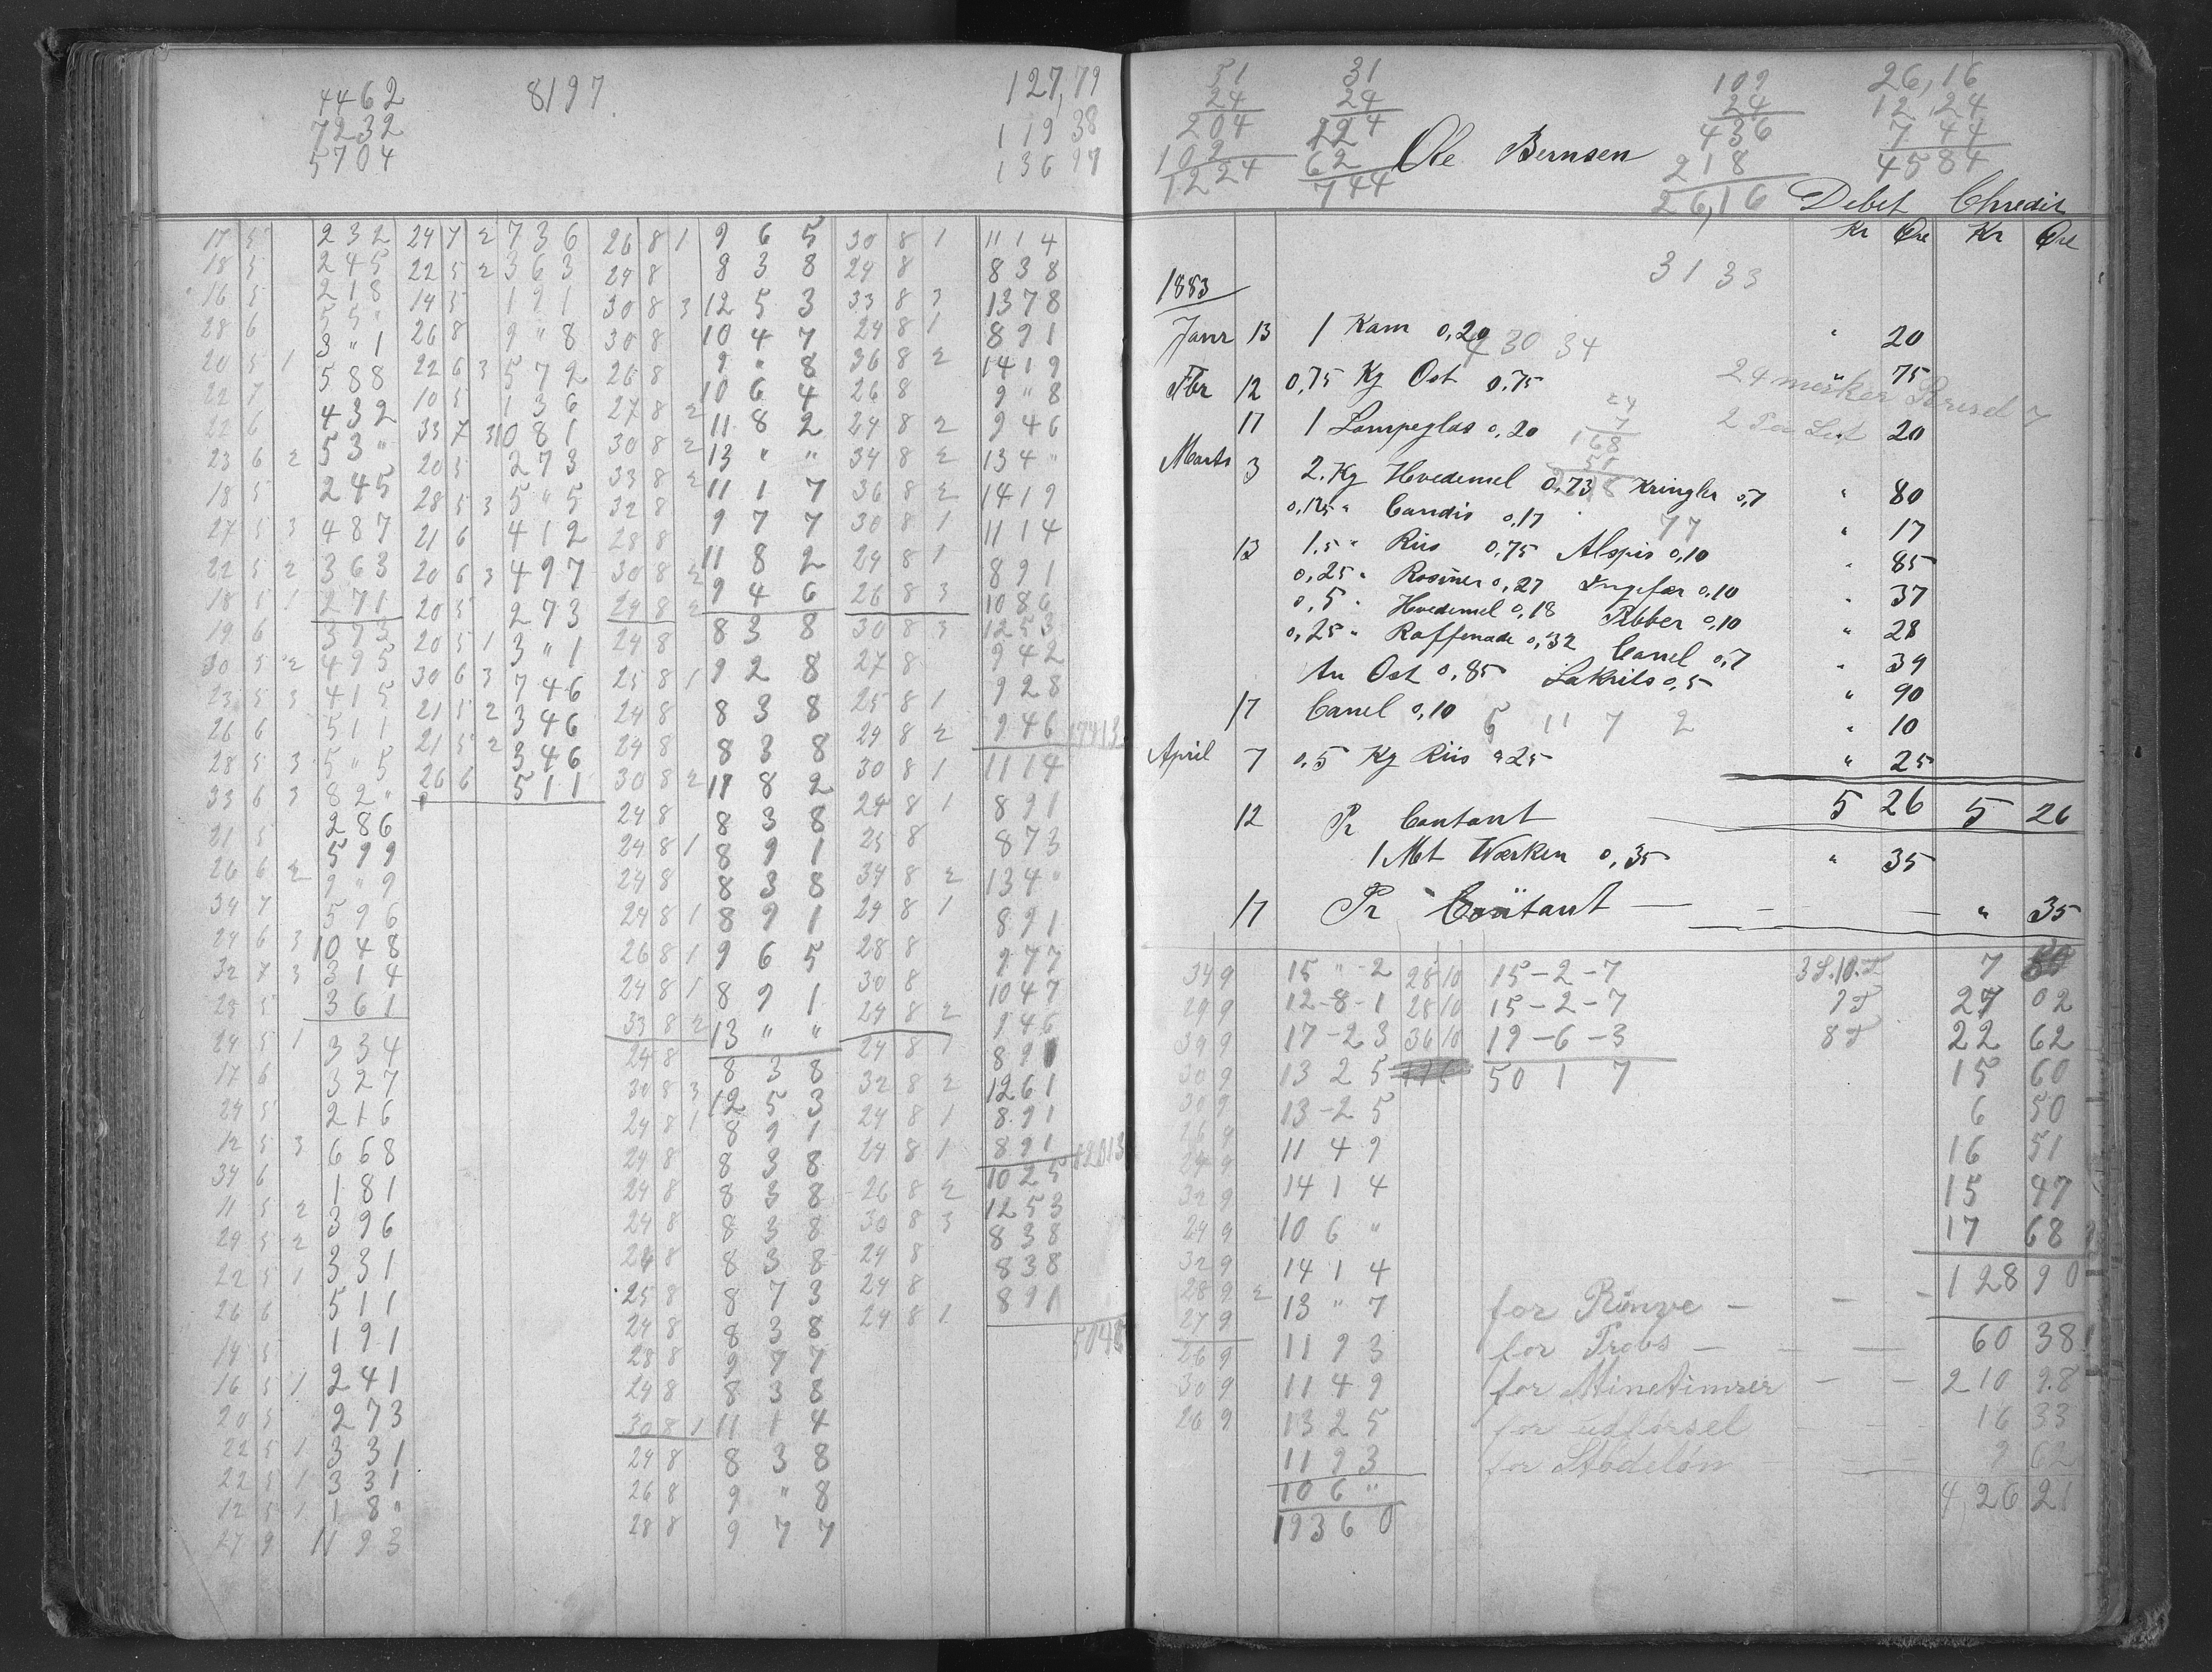 4462
7232
5704
8197
127,79
119 38
136 97
17 5 232 24 7 2 736 26 8 1 9 6 5 30 8 1 11 1 4
18 5 245 22 5 2 363 24 8 8 3 8 24 8 8 3 8
16 5 218 14 5 191 30 8 3 12 5 3 33 8 3 13 7 8
28 6 55 " 26 8 9 " 8 30 8 10 4 7 24 8 1 8 9 1
20 5 1 3 " 1 22 6 3 572 26 8 9 " 8 36 8 2 14 1 9
22 7 588 10 5 136 27 8 2 10 6 4 26 8 9 " 8
22 6 432 33 7 3 10 81 30 8 2 11 8 2 24 8 2 9 4 6
23 6 2 53 " 20 5 273 33 8 2 13 " " 34 8 2 13 4 "
18 5 245 28 5 3 5 " 5 32 8 11 1 7 36 8 2 14 1 9
27 5 3 487 21 6 412 28 8 9 7 7 30 8 1 11 1 4
22 5 2 363 20 6 3 497 30 8 2 11 8 2 24 8 1 8 9 1
18 5 1 271 20 5 273 24 8 2 9 4 6 26 8 3 10 8 6
19 6 393 20 5 1 3 " 1 24 8 8 3 8 30 8 3 12 5 3
30 5 2 495 30 6 3 746 25 8 1 9 2 8 27 8 9 4 2
23 5 3 415 21 5 2 346 24 8 8 3 8 25 8 1 9 2 8
26 6 511 21 5 2 346 24 8 8 3 8 29 8 2 9 4 6
28 5 3 5 " 5 26 6 511 30 8 2 11 8 2 30 8 1 11 1 4
33 6 3 82 " 24 8 8 3 8 24 8 1 8 9 1
21 5 286 24 8 1 8 9 1 25 8 8 7 3
26 6 2 599 24 8 8 3 8 34 8 2 13 4 "
34 7 9 " 9 24 8 1 8 9 1 29 8 1 8 9 1
24 6 3 596 26 8 1 9 6 5 28 8 9 7 7
32 7 3 1048 24 8 1 8 9 1 30 8 10 4 7
25 5 314 33 8 2 13 " " 24 8 2 9 4 6
24 5 1 361 24 8 8 3 8 24 8 1 8 9 1
17 6 334 30 8 3 12 5 3 32 8 2 12 6 1
24 5 327 24 8 1 8 9 1 24 8 1 8 9 1
12 5 3 216 24 8 8 3 8 24 8 1 8 9 1
34 6 668 24 8 8 3 8 26 8 2 10 2 5
11 5 2 181 24 8 8 3 8 30 8 3 12 5 3
29 5 2 396 24 8 8 3 8 24 8 8 3 8
22 5 1 331 25 8 8 7 3 24 8 8 3 8
26 6 511 24 8 8 3 8 24 8 1 8 9 1
14 5 191 28 8 9 7 7
16 5 1 241 24 8 8 3 8
20 5 273 30 8 1 11 1 4
22 5 1 331 24 8 8 3 8
22 5 1 331 26 8 9 " 8
12 5 1 18 " 28 8 9 7 7
27 9 11 93
51 31 109 26,16
24 24 24 12,24
204 124 436 7 44
102 62 218 45 84
1224 744 26,16
Ole Bernsen
Debet Chredit
Kr Øre Kr Øre
31 33
1883
Janr 13 1 Kam 0,20 " 20
4 30 34
Fbr 12 0,75 Kg Ost 0,75 " 75
17 1 Lampeglas 0,20 20
24
7
168
Marts 3 2. Kg Hvedemel 0,73 Kringler 0,7 " 80
0,125 " Candis 0,17 " 17
77
13 1,5 " Riis 0,75 Alspis 0,10 " 85
0,25 " Rosiner 0,27 Ingefær 0,10 " 37
0,5 " Hvedemel 0,18 Pebber 0,10 " 28
0,25 " Raffenade 0,32 Canel 0,7 " 39
An Ost 0,85 Lakrits 0,5 " 90
17 Canel 0,10 " 10
5 11 7 2
April 7 0,5 Kg Riis " 25 " 25
5 26 5 26
12 Pr Contant
1 Mt Værken 0,35 " 35
17 Pr Contant — — — " 35
34 9 15 " -2 28 10 15-2-7 7
29 9 12-8-1 28 10 15-2-7 27 02
39 9 17-2 3 36 10 19-6-3 22 62
30 9 13 2 5 50 1 7 15 60
30 9 13-2 5 6 50
26 9 11 4 9 16 51
29 9 14 1 4 15 47
32 9 10 6 " 17 68
24 9 14 1 4 128 90
32 9 13 " 7 for Rönve — — —
28 9 2 11 9 3 for Trobs — — — 60 38
27 9 11 4 9 for Minetimrer — — 210 98
26 9 13 2 5 for udförsel — — 16 33
30 9 11 9 3 for Stodelön — — 9 62
26 9 10 6 " 426 21
193 6 0